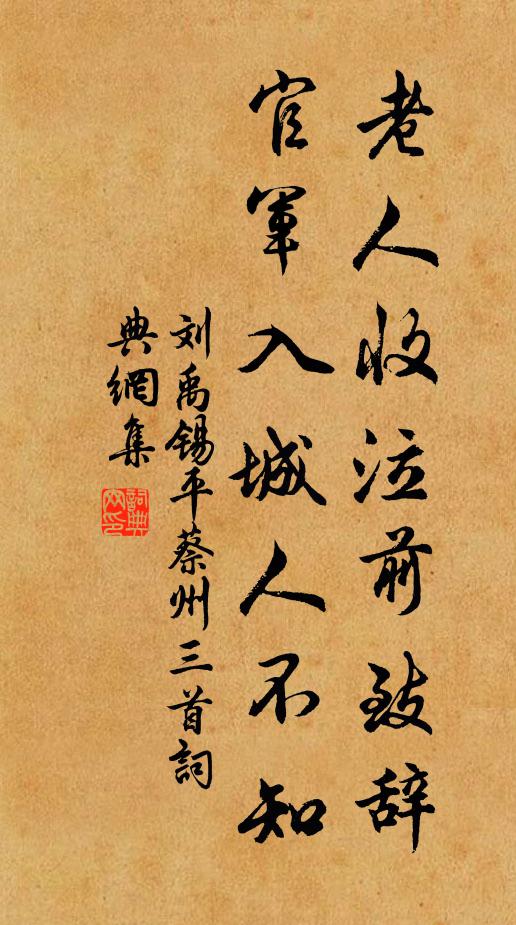 老人收泣前致辞
官军入城人不知
刘禹锡平蔡州三首詞
典網集
詞典
网印